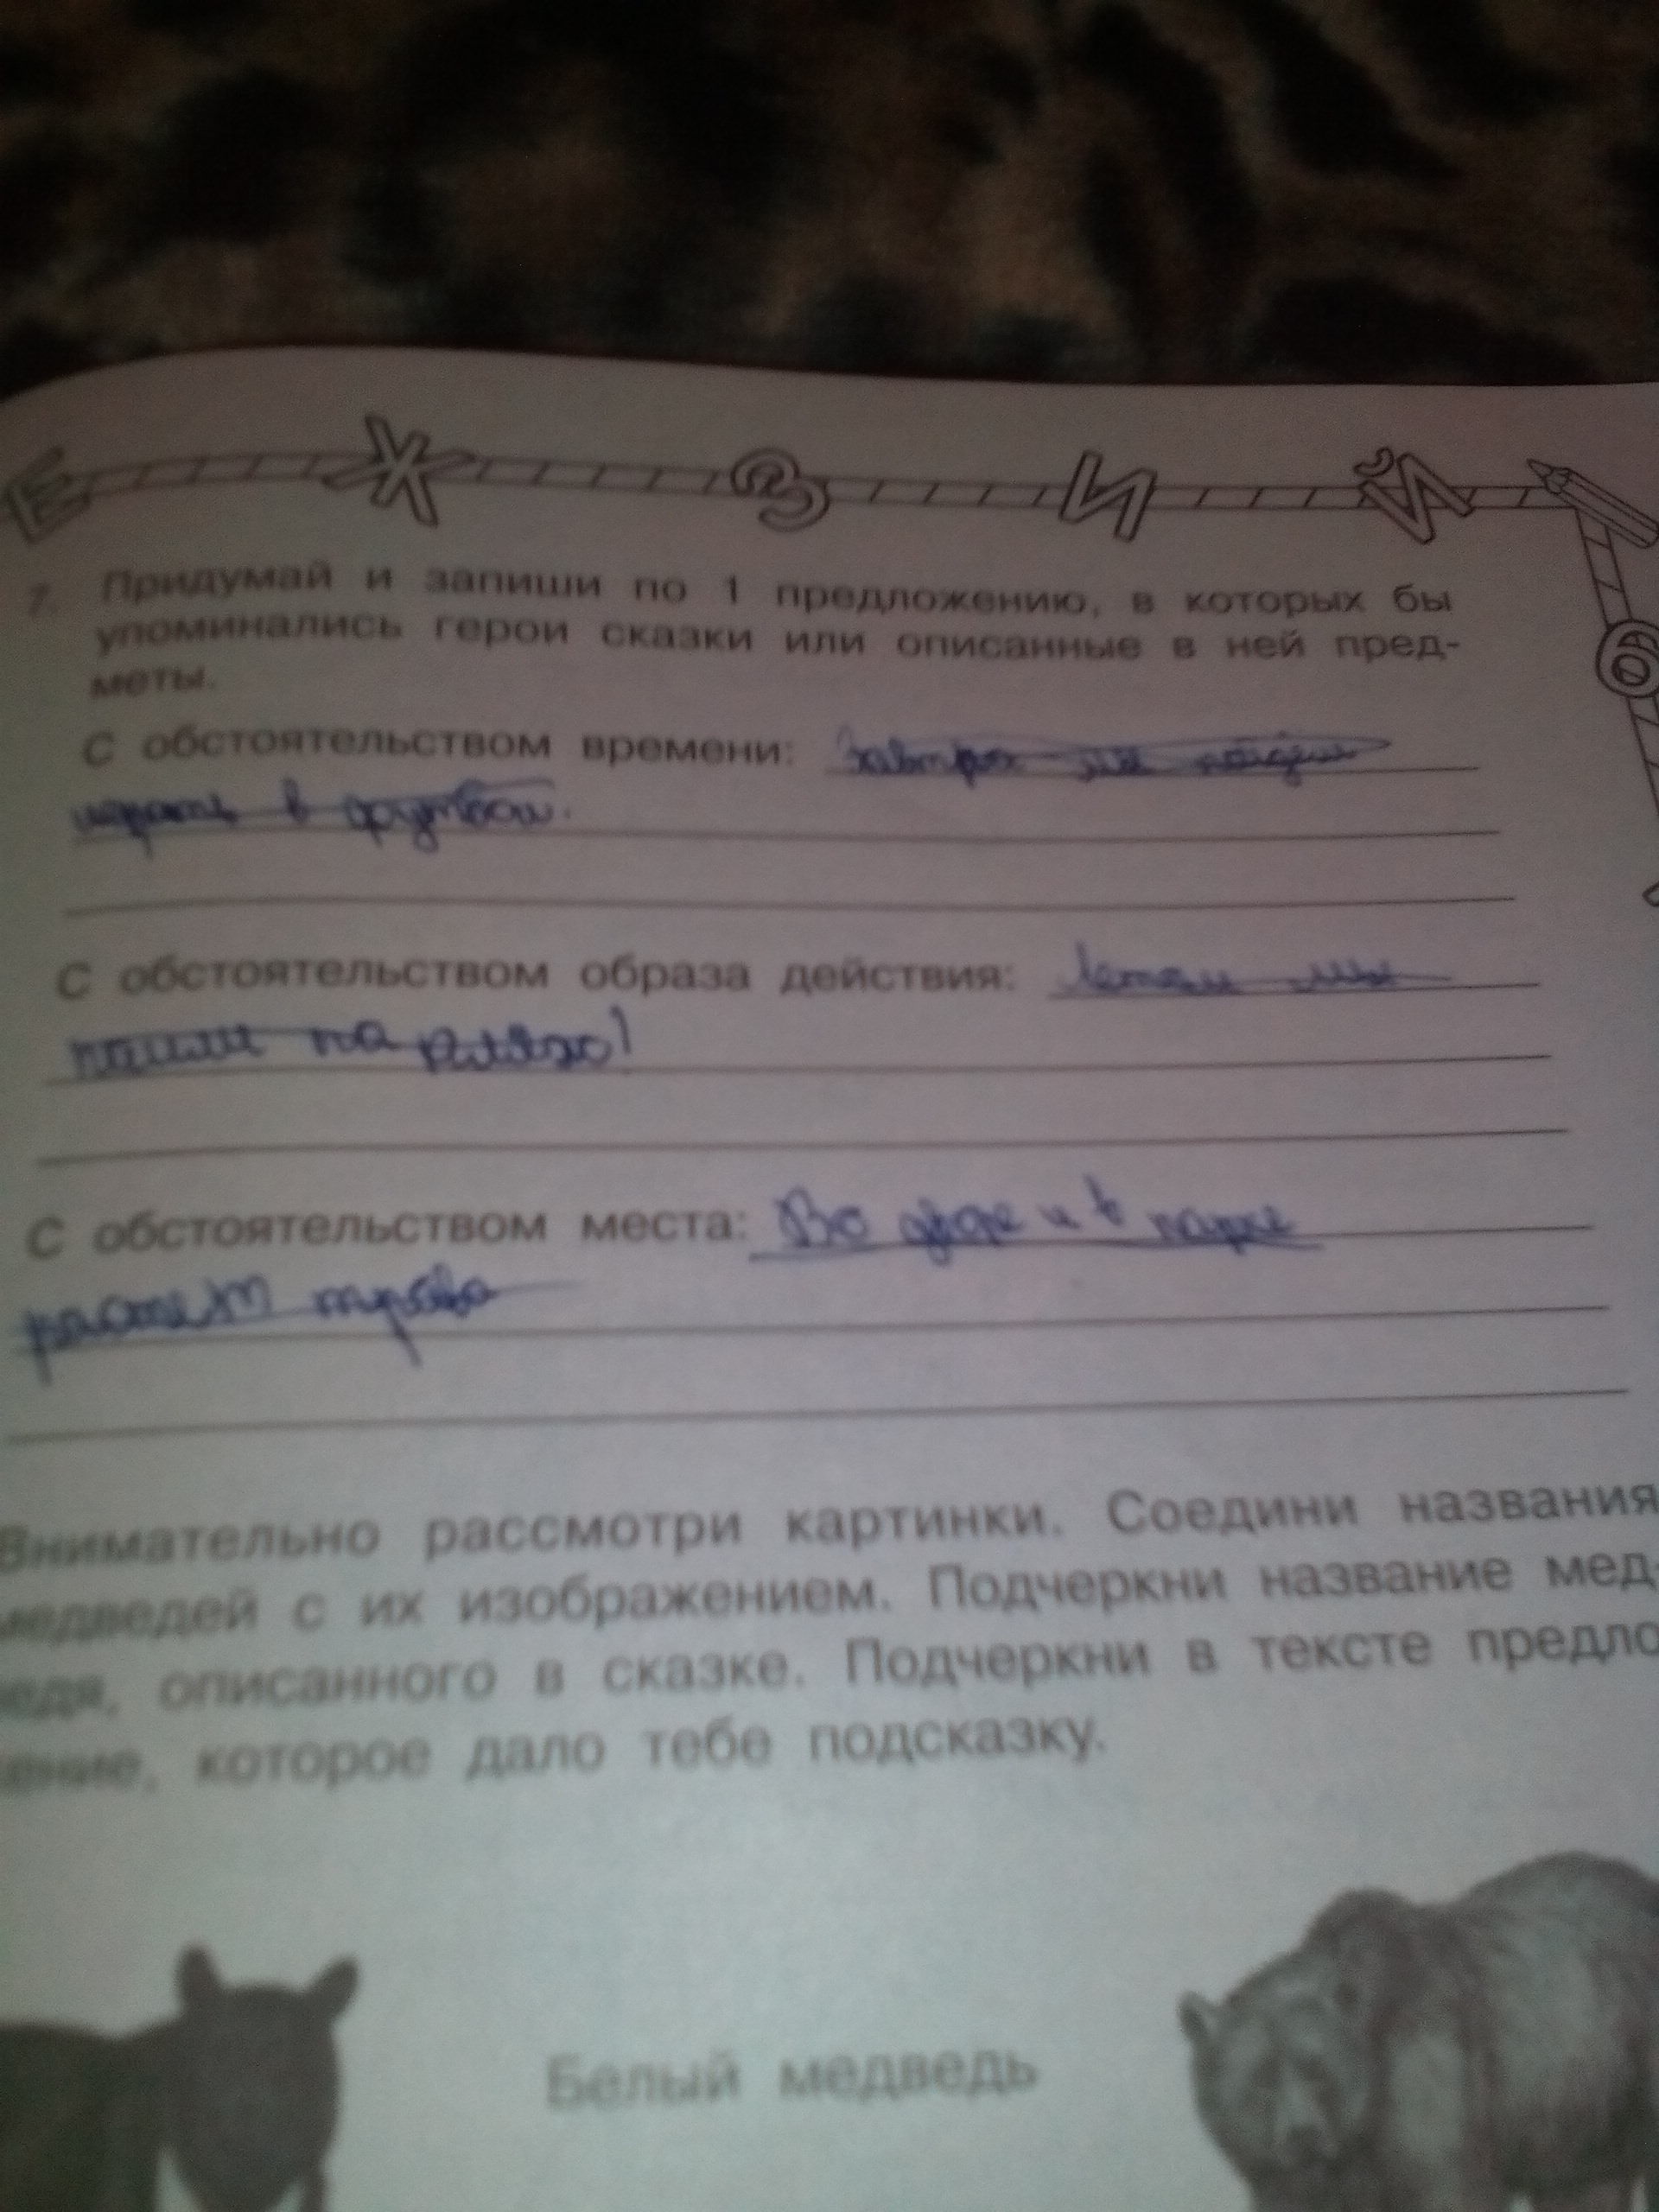 Е Ж З И Й
7. Придумай и запиши по 1 предложению, в которых бы
упоминались герои сказки или описанные в ней пред-
меты.
С обстоятельством времени: Завтра мы пойдём
играть в футбол.
С обстоятельством образа действия: Летом мы
пошли на пляж!
С обстоятельством места: Во дворе и в парке
растёт трава
Внимательно рассмотри картинки. Соедини названия
медведей с их изображением. Подчеркни название мед-
ведя, описанного в сказке. Подчеркни в тексте предло
ение, которое дало тебе подсказку.
Белый медведь